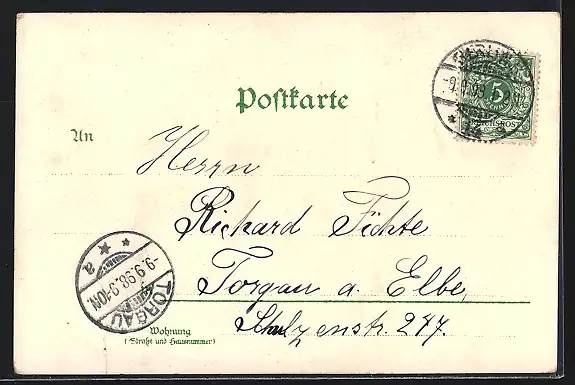 Postkarte
An
Herrn
Richard Fichte
Torgau a. Elbe,
Wohnung
(Straße und Hausnummer)
-9.9.98.
5
REICHSPOST
TORGAU
-9.9.98.9-10N.
a